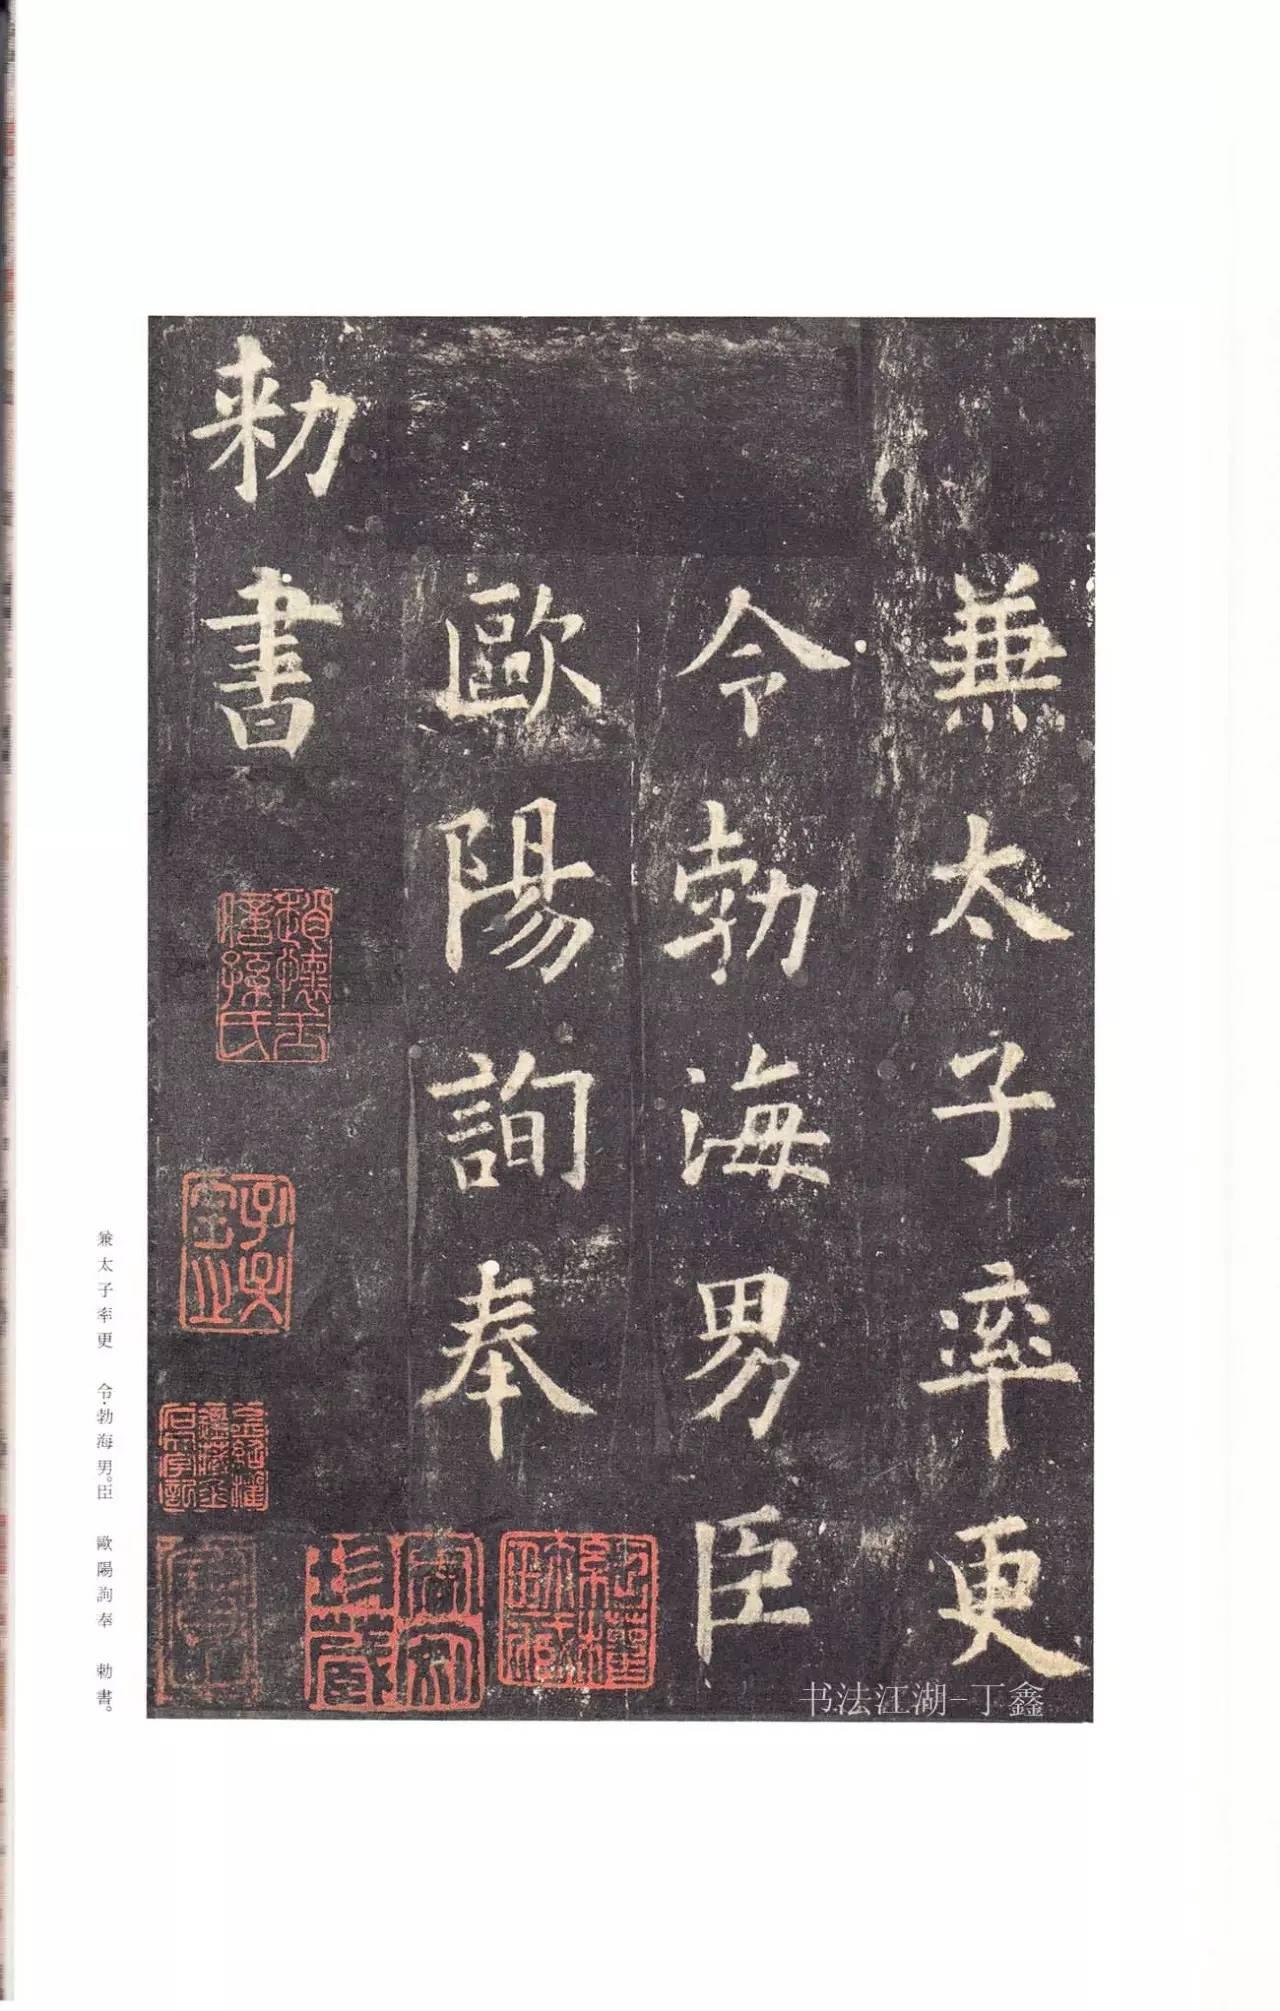 兼太子率更
令勃海男臣
歐陽詢奉
勅書
兼太子率更　令·勃海男。臣　歐陽詢奉　勅書。
书法江湖-丁鑫